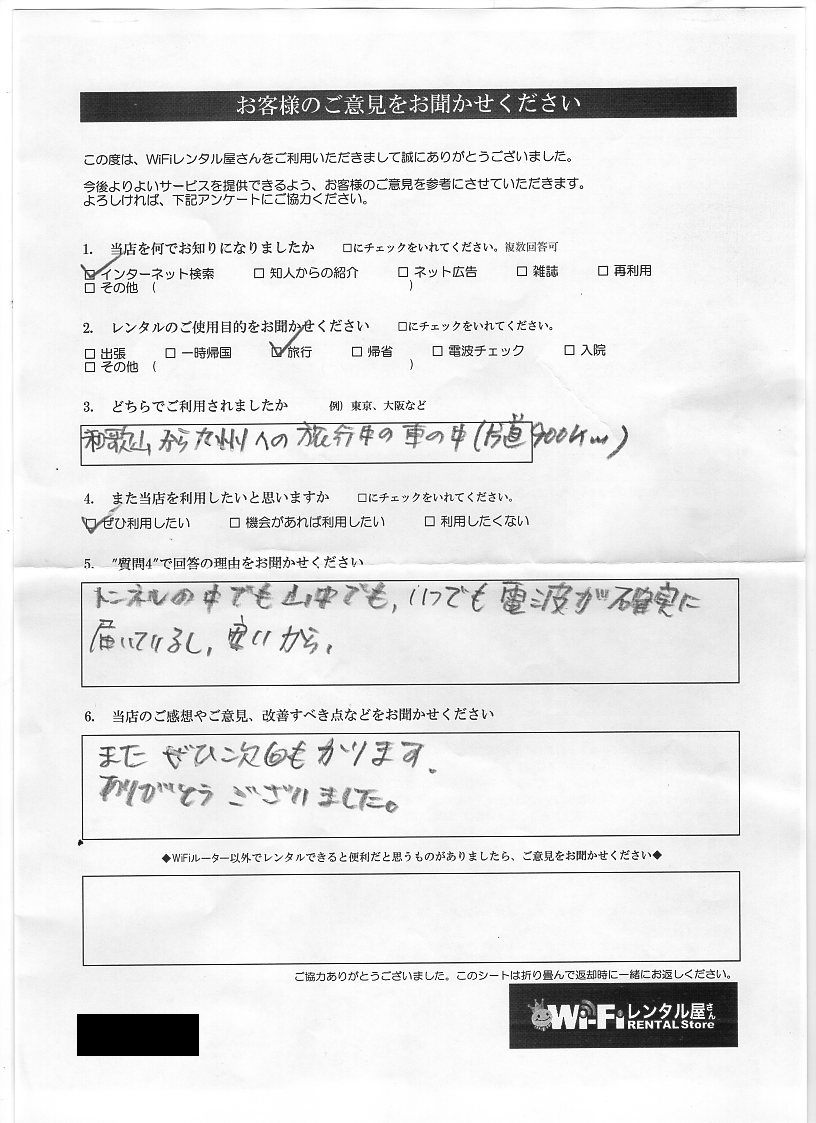 お客様のご意見をお聞かせください
この度は、WiFiレンタル屋さんをご利用いただきまして誠にありがとうございました。
今後よりよいサービスを提供できるよう、お客様のご意見を参考にさせていただきます。
よろしければ、下記アンケートにご協力ください。
1. 当店を何でお知りになりましたか □にチェックをいれてください。複数回答可
☑インターネット検索 □ 知人からの紹介 □ ネット広告 □ 雑誌 □ 再利用
□ その他 ( )
2. レンタルのご使用目的をお聞かせください □にチェックをいれてください。
□ 出張 □ 一時帰国 ☑旅行 □ 帰省 □ 電波チェック □ 入院
□ その他 ( )
3. どちらでご利用されましたか 例）東京、大阪など
和歌山から九州への旅行中の車の中(片道900km)
4. また当店を利用したいと思いますか □にチェックをいれてください。
☑ぜひ利用したい □ 機会があれば利用したい □ 利用したくない
5. "質問4"で回答の理由をお聞かせください
トンネルの中でも山中でも、いつでも電波が確実に
届いているし、安いから。
6. 当店のご感想やご意見、改善すべき点などをお聞かせください
またぜひ次回もかります。
ありがとうございました。
◆WiFiルーター以外でレンタルできると便利だと思うものがありましたら、ご意見をお聞かせください◆
ご協力ありがとうございました。このシートは折り畳んで返却時に一緒にお返しください。
Wi-Fiレンタル屋さん
RENTAL Store